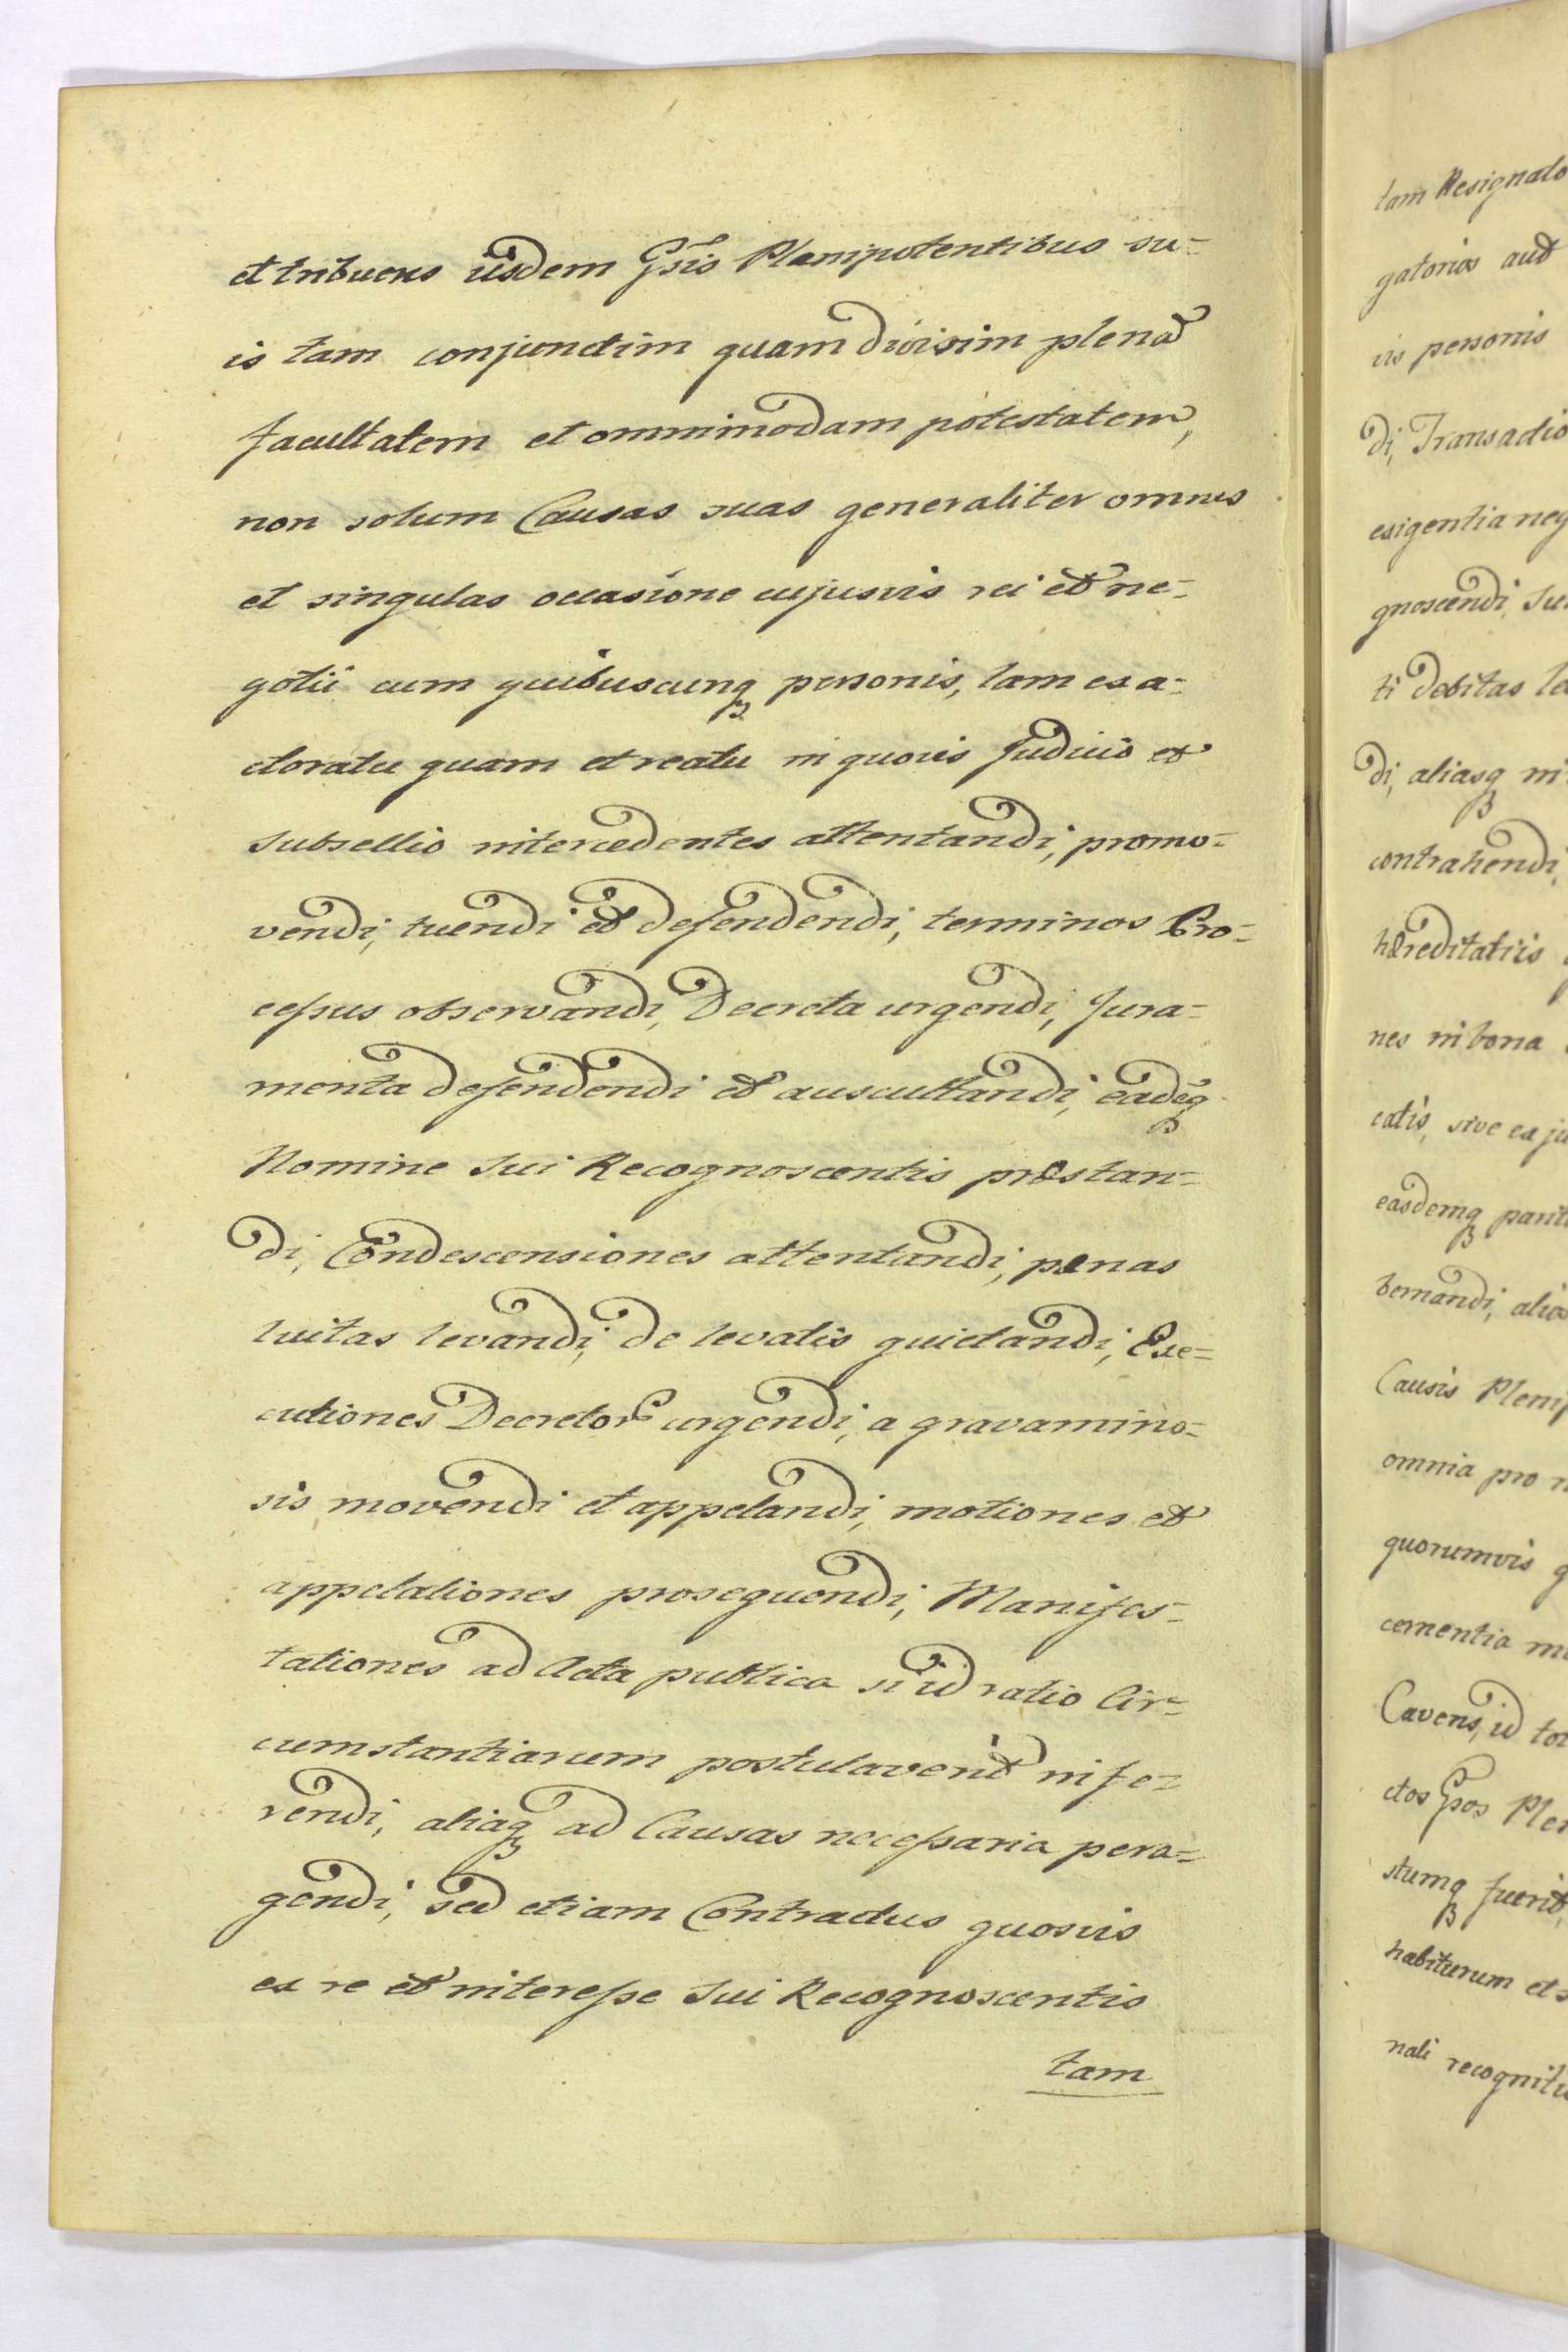 et tribuens iisdem Gsis Plenipotentibus su-
is tam conjunctim quam divisim plena
facultatem et omnimodam potestatem,
non solum Causas suas generaliter omnes
et singulas occasione cujusvis rei et ne-
gotii cum quibuscunqȝ personis, tam ex a-
ctoratu quam et reatu in quovis Judicio et
subsellio intercedentes attentandi, promo-
vendi, tuendi et defendendi, terminos Pro-
cessus observandi, Decreta urgendi, Jura-
menta defendendi et auscultandi, eadeqȝ
Nomine Sui Recognoscentis præstan-
di, Condescensiones attentandi, pænas
luitas levandi, de levatis quietandi, Exe-
cutiones Decretor urgendi, a gravamino-
sis movendi et appelandi, motiones et
appelationes prosequendi, Manifes-
tationes ad Acta publica si id ratio Cir-
cumstantiarum postulaverit infe-
rendi, aliaqȝ ad Causas necessaria pera-
gendi, sed etiam Contractus quosvis
ex re et interesse Sui Recognoscentis
tam
tam Resignato
gatorios aut
vis personis
di, Transactio
exigentia neg
gnoscendi, Su
ti debitas le
di, aliasqȝ in
contrahendi,
hæreditatiis
nes in bona
catis, sive ex ju
easdemqȝ parit
bernandi, alios
Causis Plenip
omnia pro
quorumvis q
cementia
Cavens, id tot
ctos Gsos Plen
stumqȝ fuerit,
habiturum et
nali recognitio